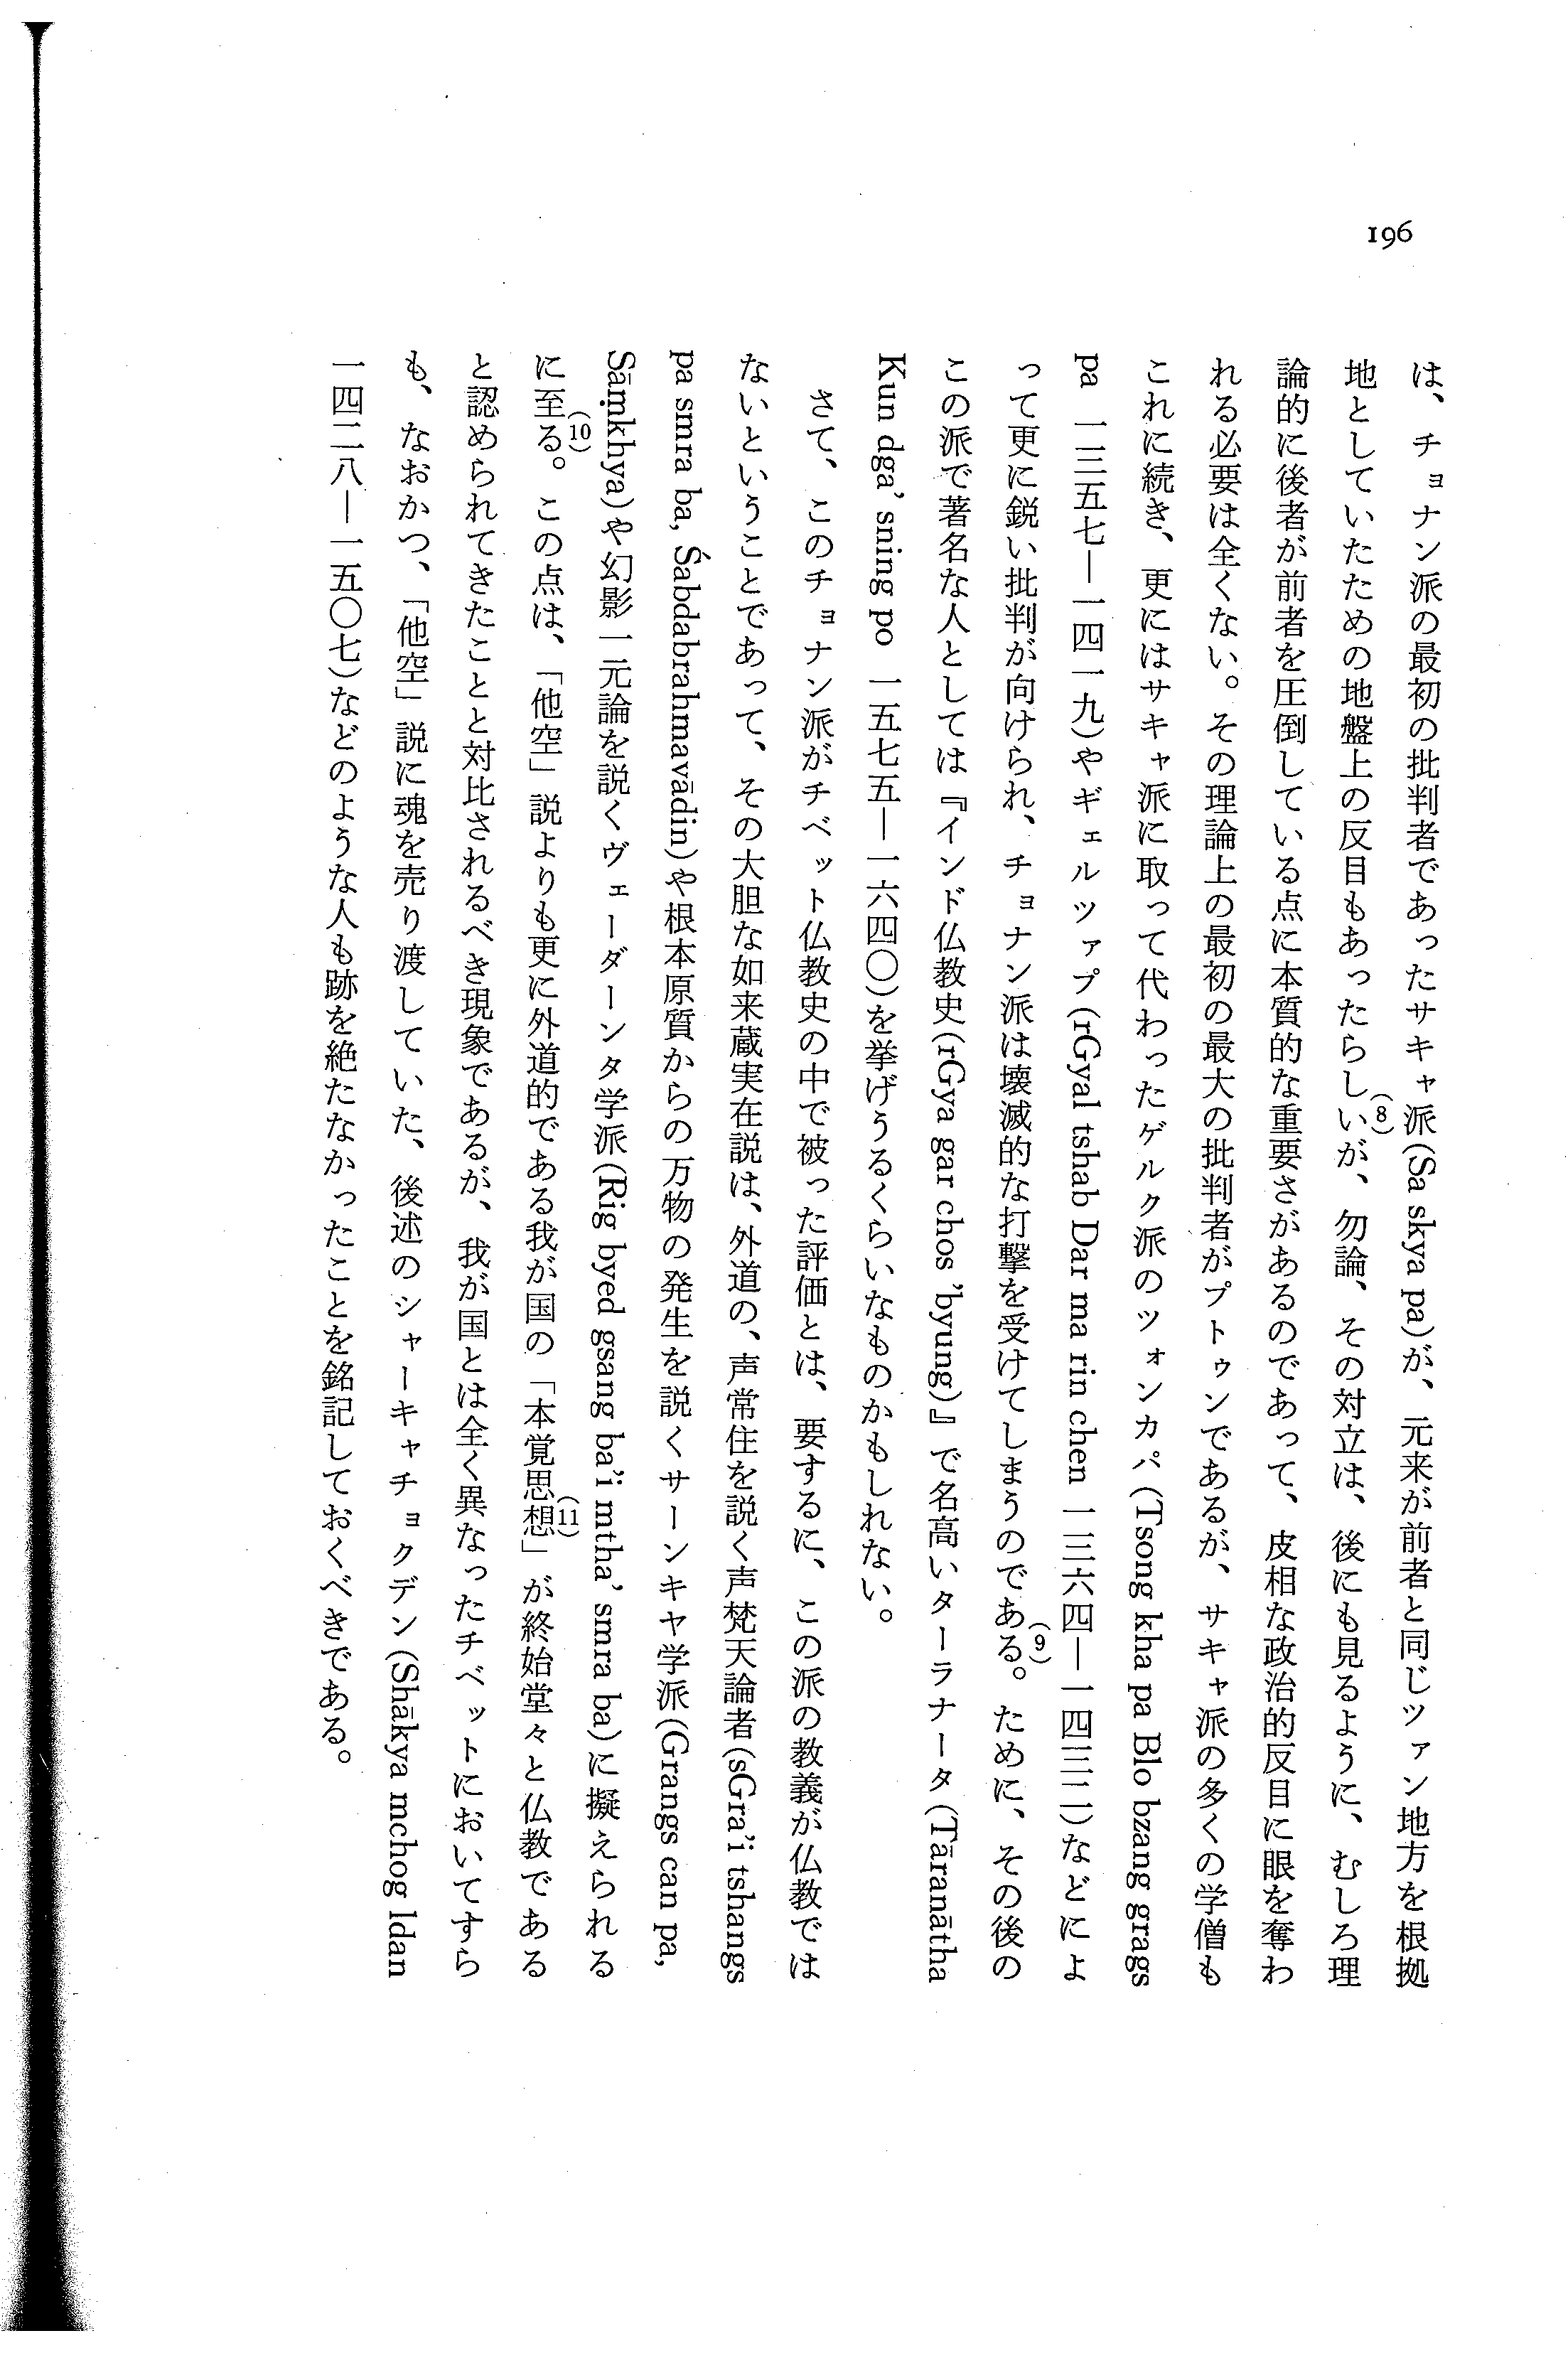 196
は、チョナン派の最初の批判者であったサキャ派(Sa skya pa)が、元来が前者と同じツァン地方を根拠
地としていたための地盤上の反目もあったらしい(8)が、勿論、その対立は、後にも見るように、むしろ理
論的に後者が前者を圧倒している点に本質的な重要さがあるのであって、皮相な政治的反目に眼を奪わ
れる必要は全くない。その理論上の最初の最大の批判者がプトゥンであるが、サキャ派の多くの学僧も
これに続き、更にはサキャ派に取って代わったゲルク派のツォンカパ(Tsong kha pa Blo bzang grags
pa 一三五七―一四一九)やギェルツァプ(rGyal tshab Dar ma rin chen 一三六四―一四三二)などによ
って更に鋭い批判が向けられ、チョナン派は壊滅的な打撃を受けてしまうのである(9)。ために、その後の
この派で著名な人としては『インド仏教史(rGya gar chos 'byung)』で名高いターラナータ(Tāranātha
Kun dga' sning po 一五七五―一六四〇)を挙げうるくらいなものかもしれない。
さて、このチョナン派がチベット仏教史の中で被った評価とは、要するに、この派の教義が仏教では
ないということであって、その大胆な如来蔵実在説は、外道の、声常住を説く声梵天論者(sGra'i tshangs
pa smra ba, Śabdabrahmavādin)や根本原質からの万物の発生を説くサーンキヤ学派(Grangs can pa,
Sāṃkhya)や幻影一元論を説くヴェーダーンタ学派(Rig byed gsang ba'i mtha' smra ba)に擬えられる
に至る(10)。この点は、「他空」説よりも更に外道的である我が国の「本覚思想(11)」が終始堂々と仏教である
と認められてきたことと対比されるべき現象であるが、我が国とは全く異なったチベットにおいてすら
も、なおかつ、「他空」説に魂を売り渡していた、後述のシャーキャチョクデン(Shākya mchog ldan
一四二八―一五〇七)などのような人も跡を絶たなかったことを銘記しておくべきである。